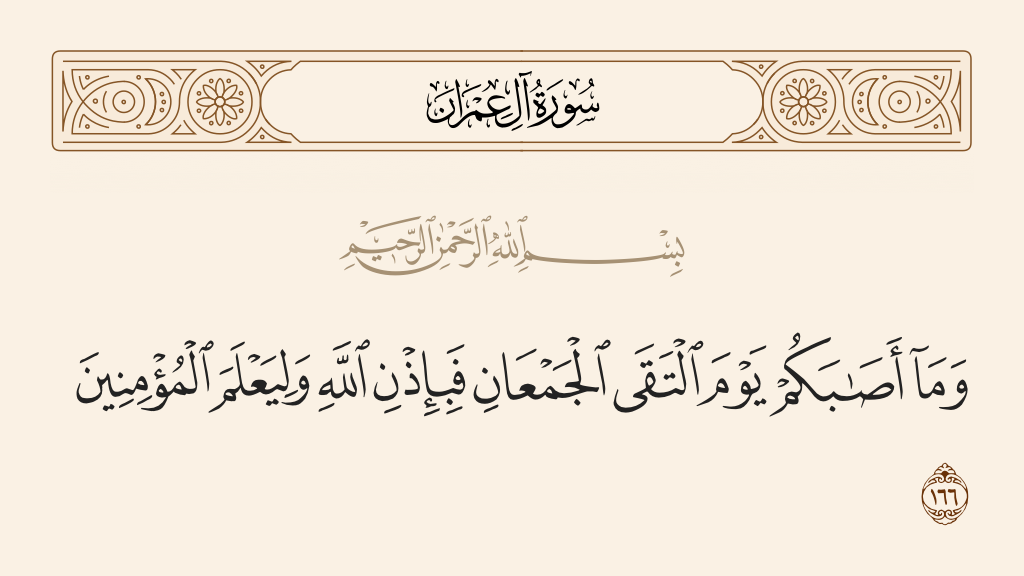 سُورَةُ آلِ عِمْرَانَ
بِسْمِ ٱللَّهِ ٱلرَّحْمَٰنِ ٱلرَّحِيمِ
وَمَآ أَصَٰبَكُمْ يَوْمَ ٱلْتَقَى ٱلْجَمْعَانِ فَبِإِذْنِ ٱللَّهِ وَلِيَعْلَمَ ٱلْمُؤْمِنِينَ
١٦٦